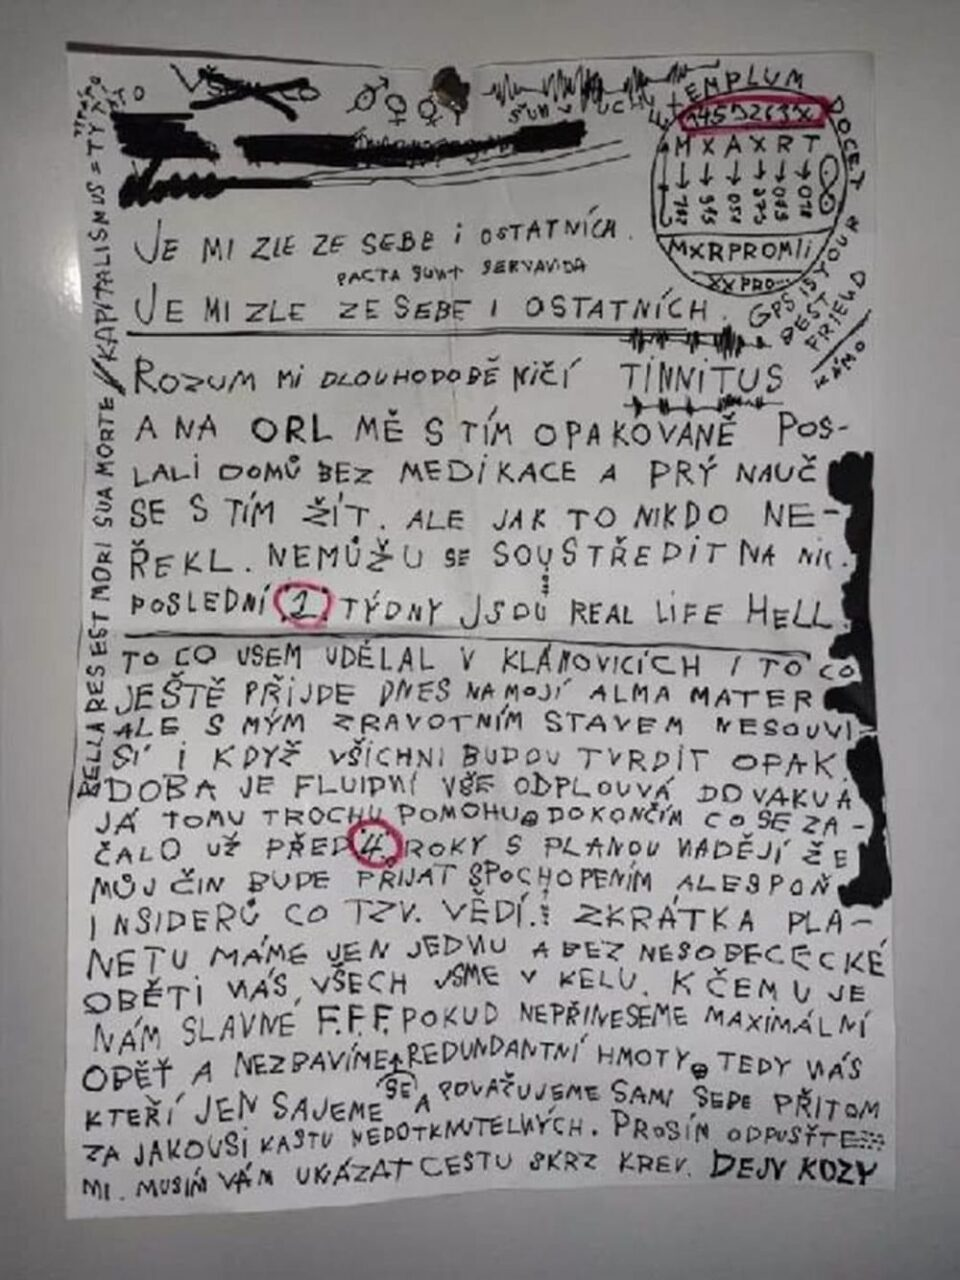 TEMPLUM
DOCET
M X A X R T
MXRPROMII
XXPRO
GPS IS YOUR
BEST
FRIEND
KÁMO
KAPITALISMUS = TY
BELLA RES EST MORI SUA MORTE
JE MI ZLE ZE SEBE I OSTATNÍCH.
PACTA SUNT SERVAVIDA
JE MI ZLE ZE SEBE I OSTATNÍCH.
ROZUM MI DLOUHODOBĚ NIČÍ TINNITUS
A NA ORL MĚ S TÍM OPAKOVANĚ POS-
LALI DOMŮ BEZ MEDIKACE A PRÝ NAUČ
SE S TÍM ŽÍT. ALE JAK TO NIKDO NE-
ŘEKL. NEMŮŽU SE SOUSTŘEDIT NA NIC.
POSLEDNÍ 1 TÝDNY JSOU REAL LIFE HELL.
TO CO JSEM UDĚLAL V KLÁNOVICÍCH I TO CO
JEŠTĚ PŘIJDE DNES NA MOJÍ ALMA MATER
ALE S MÝM ZRAVOTNÍM STAVEM NESOUVI-
SÍ I KDYŽ VŠICHNI BUDOU TVRDIT OPAK.
DOBA JE FLUIDNÍ VŠE ODPLOUVÁ DO VAKUA
JÁ TOMU TROCHU POMOHU. DOKONČÍM CO SE ZA-
ČALO UŽ PŘED 4 ROKY S PLANOU NADĚJÍ ŽE
MŮJ ČIN BUDE PŘIJAT S POCHOPENÍM ALESPOŇ
INSIDERŮ CO TZV. VĚDÍ. ZKRÁTKA PLA-
NETU MÁME JEN JEDNU A BEZ NESOBECECKÉ
OBĚTI NÁS VŠECH JSME V KELU. K ČEMU JE
NÁM SLAVNÉ F.F.F. POKUD NEPŘINESEME MAXIMÁLNÍ
OBĚŤ A NEZBAVÍME SE REDUNDANTNÍ HMOTY. TEDY NÁS
KTEŘÍ JEN SAJEME A POVAŽUJEME SAMI SEBE PŘITOM
ZA JAKOUSI KASTU NEDOTKNUTELNÝCH. PROSÍM ODPUSŤTE
MI. MUSÍM VÁM UKÁZAT CESTU SKRZ KREV. DEJV KOZY